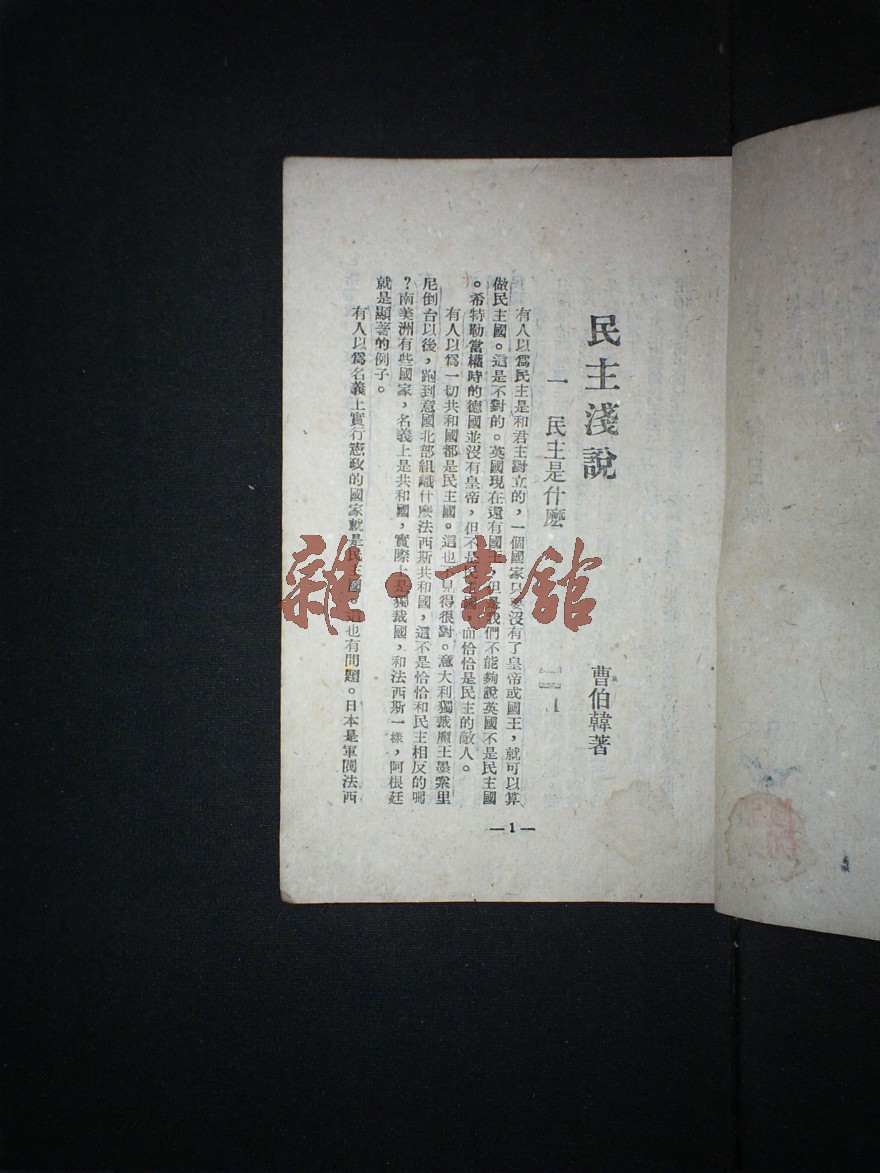 民主淺說
曹伯韓著
一　民主是什麼
有人以爲民主是和君主對立的，一個國家只要沒有了皇帝或國王，就可以算
做民主國。這是不對的。英國現在還有國王，但是我們不能夠說英國不是民主國
。希特勒當權時的德國並沒有皇帝，但不是民主國，而恰恰是民主的敵人。
有人以爲一切共和國都是民主國。這也不見得很對。意大利獨裁魔王墨索里
尼倒台以後，跑到意國北部組織什麼法西斯共和國，這不是恰恰和民主相反的嗎
？南美洲有些國家，名義上是共和國，實際上是獨裁國，和法西斯一樣，阿根廷
就是顯著的例子。
有人以爲名義上實行憲政的國家就是民主國。這也有問題。日本是軍閥法西
—1—
雜·書館